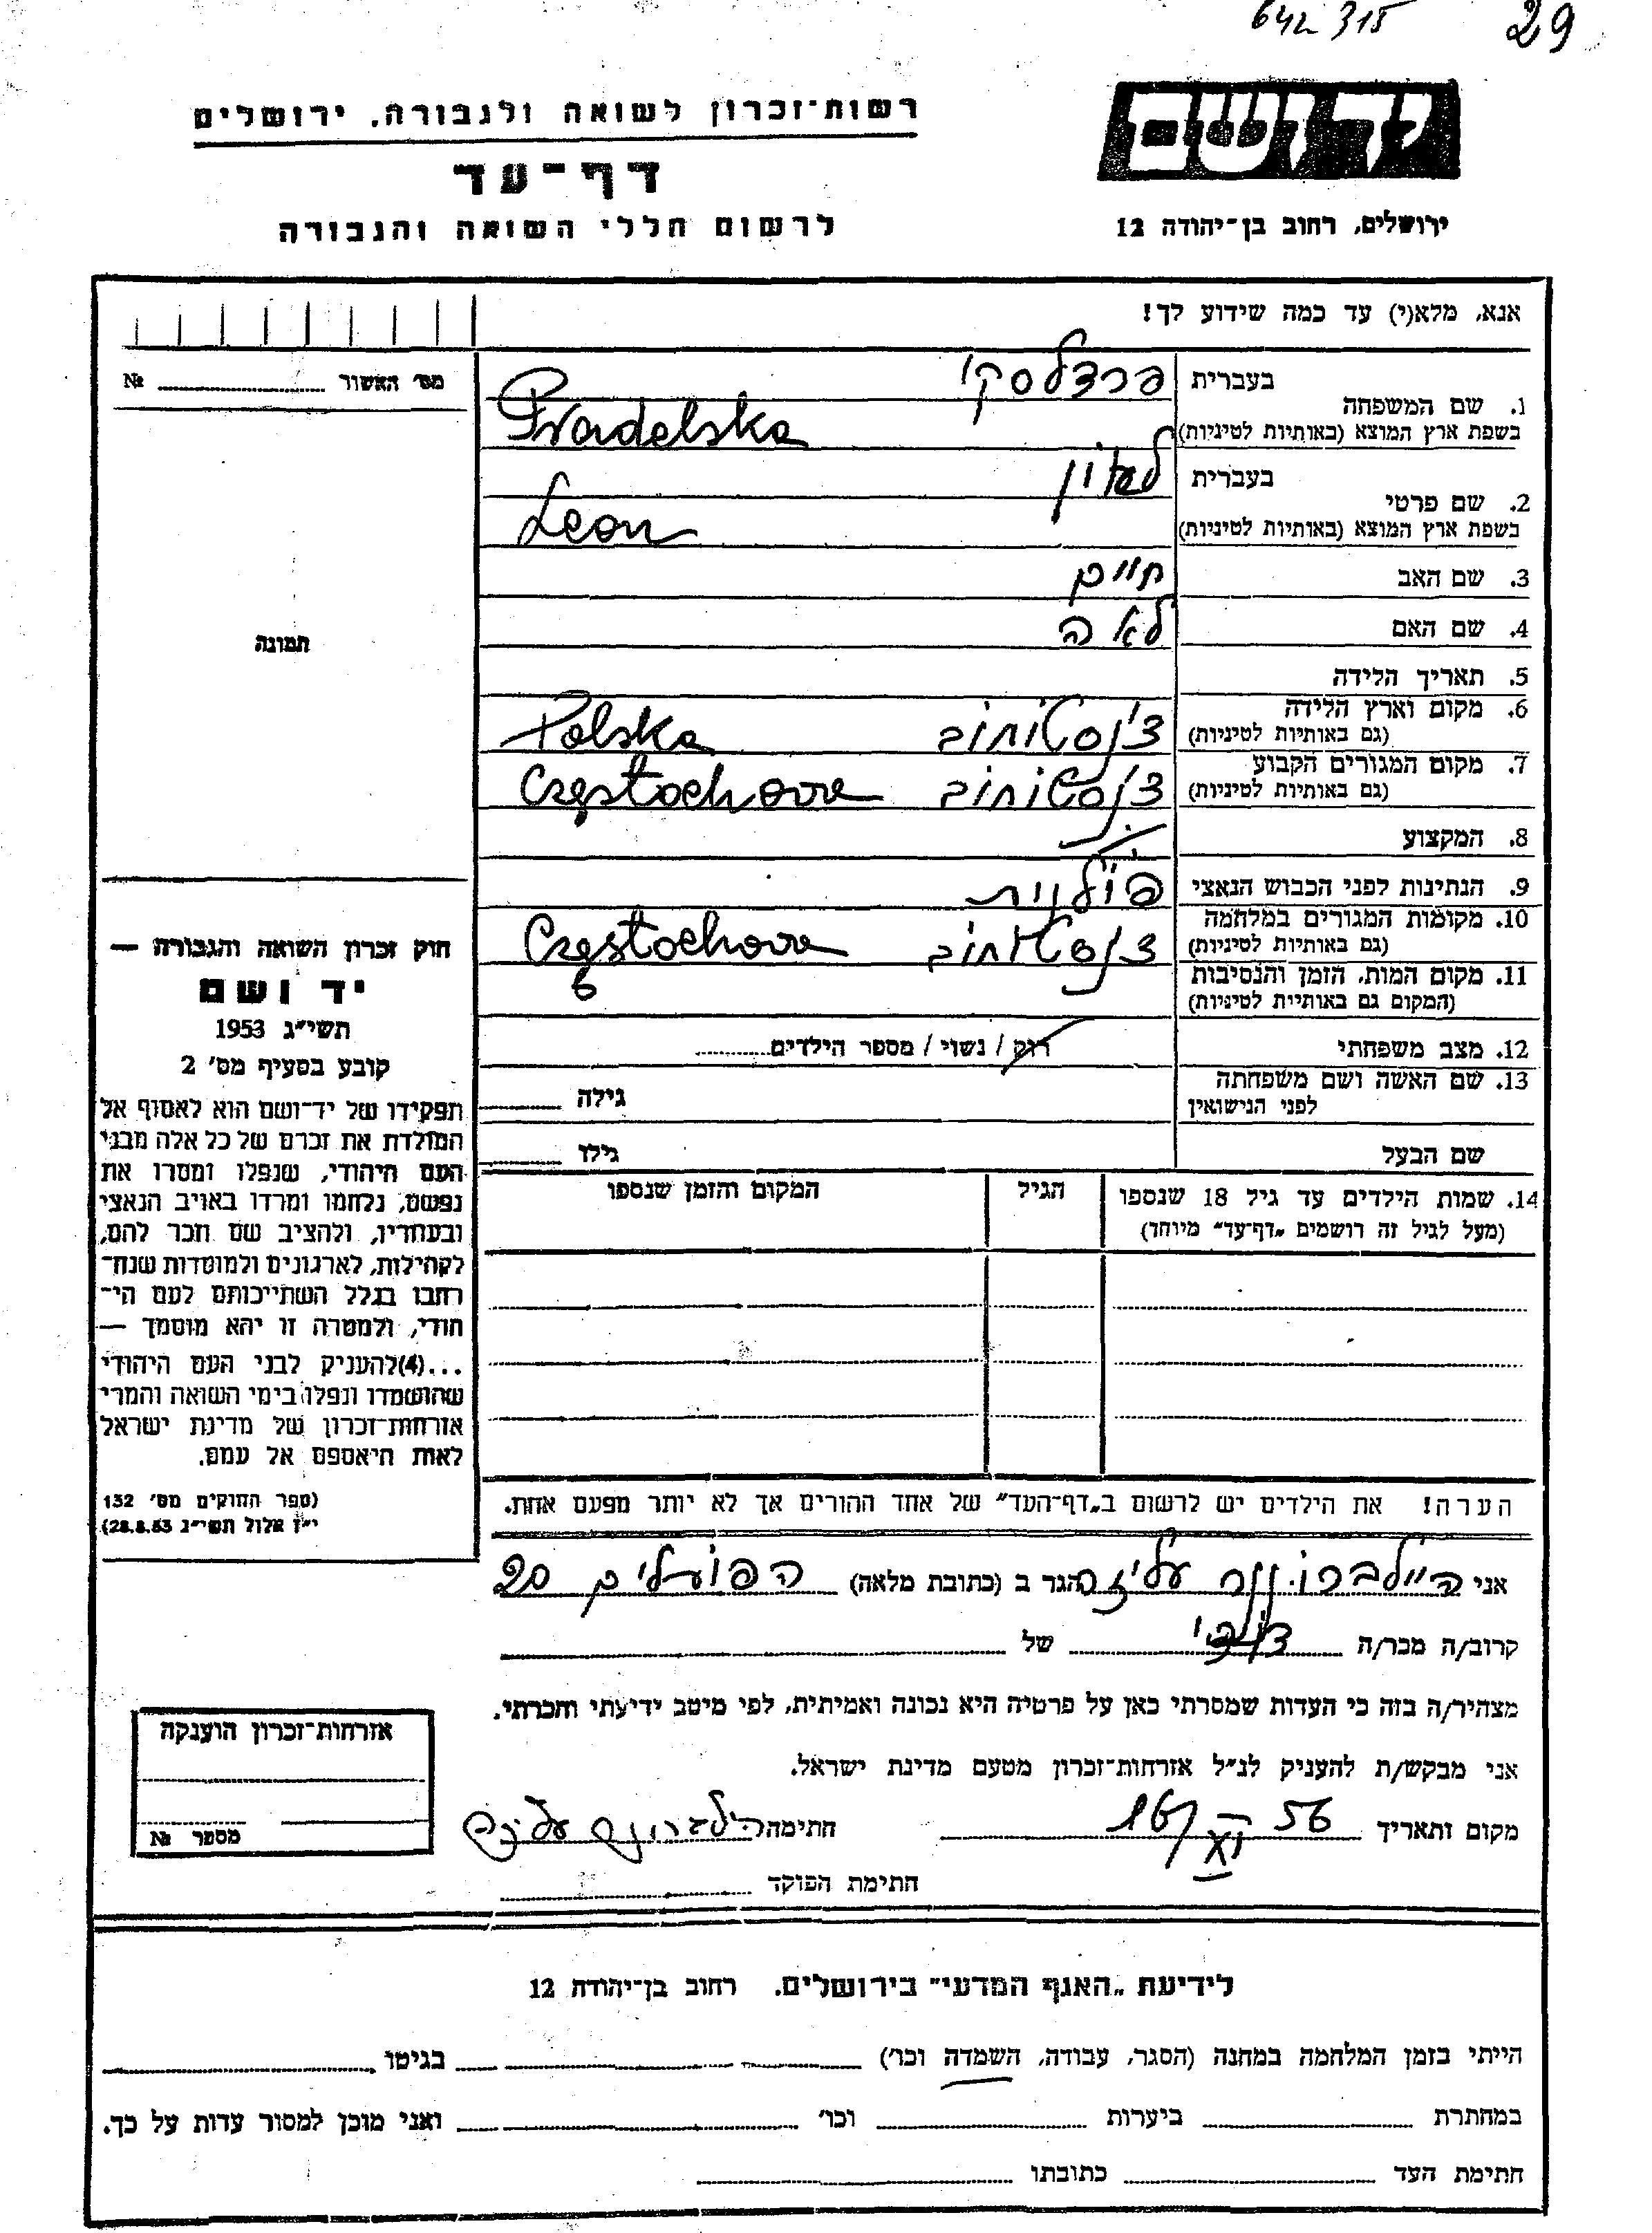 642 315
29
יד ושם
ירושלים, רחוב בן־יהודה 12
רשות־זכרון לשואה ולגבורה, ירושלים
דף־עד
לרשום חללי השואה והגבורה
אנא, מלא(י) עד כמה שידוע לך!
1. שם המשפחה בעברית פרדלסקי
בשפת ארץ המוצא (באותיות לטיניות) Pradelska
2. שם פרטי בעברית לאון
בשפת ארץ המוצא (באותיות לטיניות) Leon
3. שם האב חיים
4. שם האם לאה
5. תאריך הלידה
6. מקום וארץ הלידה
(גם באותיות לטיניות) צ'נסטוחוב Polska
7. מקום המגורים הקבוע
(גם באותיות לטיניות) צ'נסטוחוב Częstochowa
8. המקצוע
9. הנתינות לפני הכבוש הנאצי פולנית
10. מקומות המגורים במלחמה
(גם באותיות לטיניות) צ'נסטוחוב Częstochowa
11. מקום המות, הזמן והנסיבות
(המקום גם באותיות לטיניות)
12. מצב משפחתי רוק / נשוי / מספר הילדים
13. שם האשה ושם משפחתה
לפני הנישואין גילה
שם הבעל גילו
14. שמות הילדים עד גיל 18 שנספו
(מעל לגיל זה רושמים „דף־עד" מיוחד)
הגיל
המקום והזמן שנספו
הערה! את הילדים יש לרשום ב„דף־העד" של אחד ההורים אך לא יותר מפעם אחת.
מס' האשור №
תמונה
חוק זכרון השואה והגבורה —
יד ושם
תשי"ג 1953
קובע בסעיף מס' 2
תפקידו של יד־ושם הוא לאסוף אל
המולדת את זכרם של כל אלה מבני
העם היהודי, שנפלו ומסרו את
נפשם, נלחמו ומרדו באויב הנאצי
ובעוזריו, ולהציב שם וזכר להם,
לקהילות, לארגונים ולמוסדות שנח־
רבו בגלל השתייכותם לעם הי־
הודי, ולמטרה זו יהא מוסמך —
...(4) להעניק לבני העם היהודי
שהושמדו ונפלו בימי השואה והמרי
אזרחות־זכרון של מדינת ישראל
לאות היאספם אל עמם.
(ספר החוקים מס' 132
י"ז אלול תשי"ג 28.8.53)
אני היילברון עליזה הגר ב (כתובת מלאה) הפועלים 20
קרוב/ה מכר/ה של
מצהיר/ה בזה כי העדות שמסרתי כאן על פרטיה היא נכונה ואמיתית, לפי מיטב ידיעתי והכרתי.
אני מבקש/ת להעניק לנ"ל אזרחות־זכרון מטעם מדינת ישראל.
מקום ותאריך 56 חתימה
חתימת הפוקד
אזרחות־זכרון הוענקה
מספר №
לידיעת „האגף המדעי" בירושלים. רחוב בן־יהודה 12
הייתי בזמן המלחמה במחנה (הסגר, עבודה, השמדה וכו') בגיטו
במחתרת ביערות וכו' ואני מוכן למסור עדות על כך.
חתימת העד כתובתו